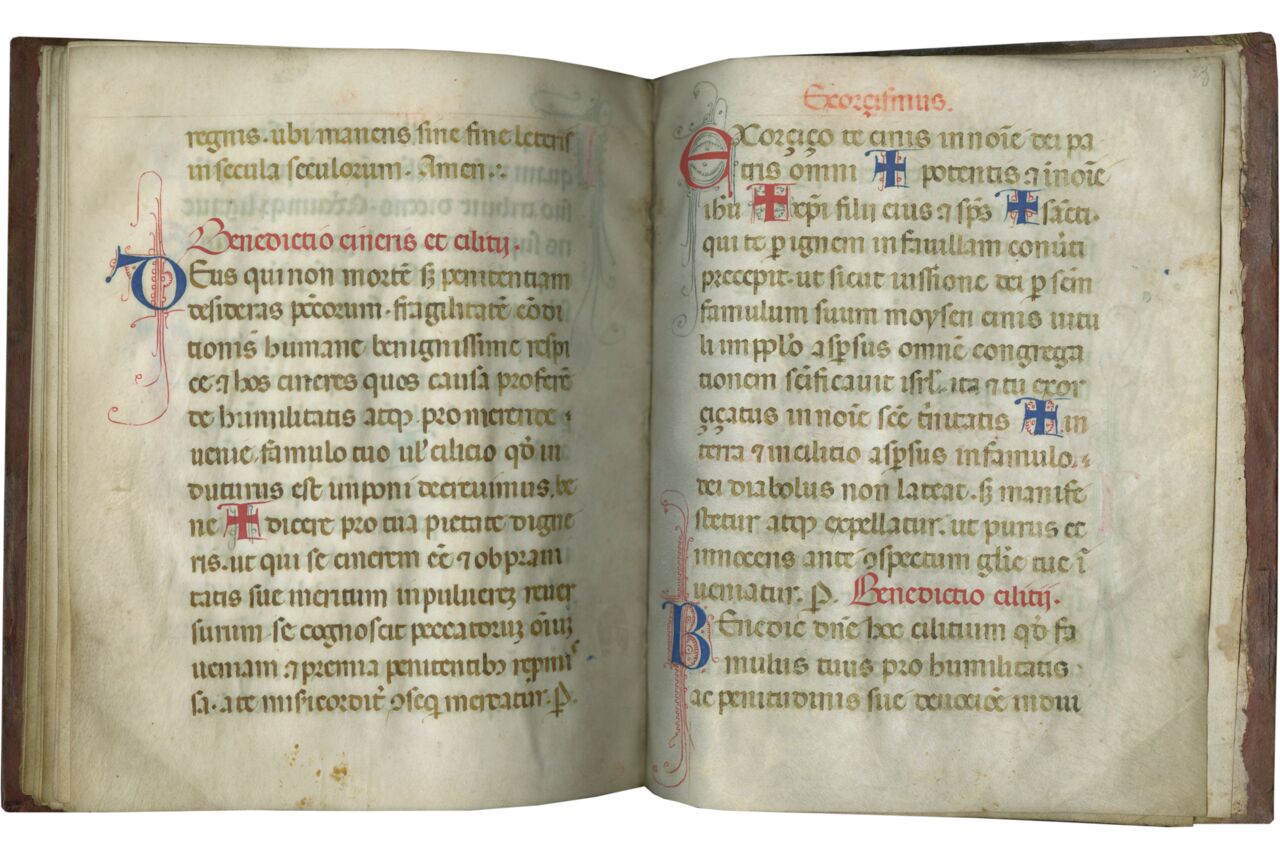 regnis. ubi manens sine fine leteris
in secula seculorum. Amen.
Benedictio cineris et cilitij.
DEus qui non mortē sꝫ penitentiam
desideras pccōrum. fragilitatē cōdi
tionis humane benignissime respi
ce ⁊ hos cineres quos causa proferē
de humilitatis atqꝫ promerende
uenie. famulo tuo ul' cilicio qđ in
duturus est imponi decreuimus. be
ne ✠ dicere pro tua pietate digne
ris. ut qui se cinerem eē ⁊ ob praui
tatis sue meritum in puluereꝫ reuer
surum se cognoscit peccatoruꝫ oīuꝫ
ueniam ⁊ premia penitentibꝫ repmis
sa. a te misericordit̄ ꝯseq mereatur. P.
Exorçismus.
EXorçiço te cinis in noīe dei pa
tris omni ✠ potentis ⁊ in noīe
ihū ✠ xp̄i filij eius ⁊ sp̄s ✠ sancti.
qui te ꝑ ignem in fauillam conūti
precepit. ut sicut iussione dei ꝑ scm̄
famulum suum moysen cinis uitu
li in pp̄lo asp̄sus omnē congrega
tionem scīficauit isrl̄. ita ⁊ tu exor
çiçatus in noīe scē t̄nitatis ✠ in
terra ⁊ in cilicio asp̄sus in famulo.
dei diabolus non lateat. sꝫ manife
stetur atqꝫ expellatur. ut purus et
innocens ante ꝯspectum gl̄ie tue ī
ueniatur. P. Benedictio cilitij.
BEnedic dn̄e hoc cilitium qđ fa
mulus tuus pro humilitatis
ac penitudinis sue deuocīōe indui